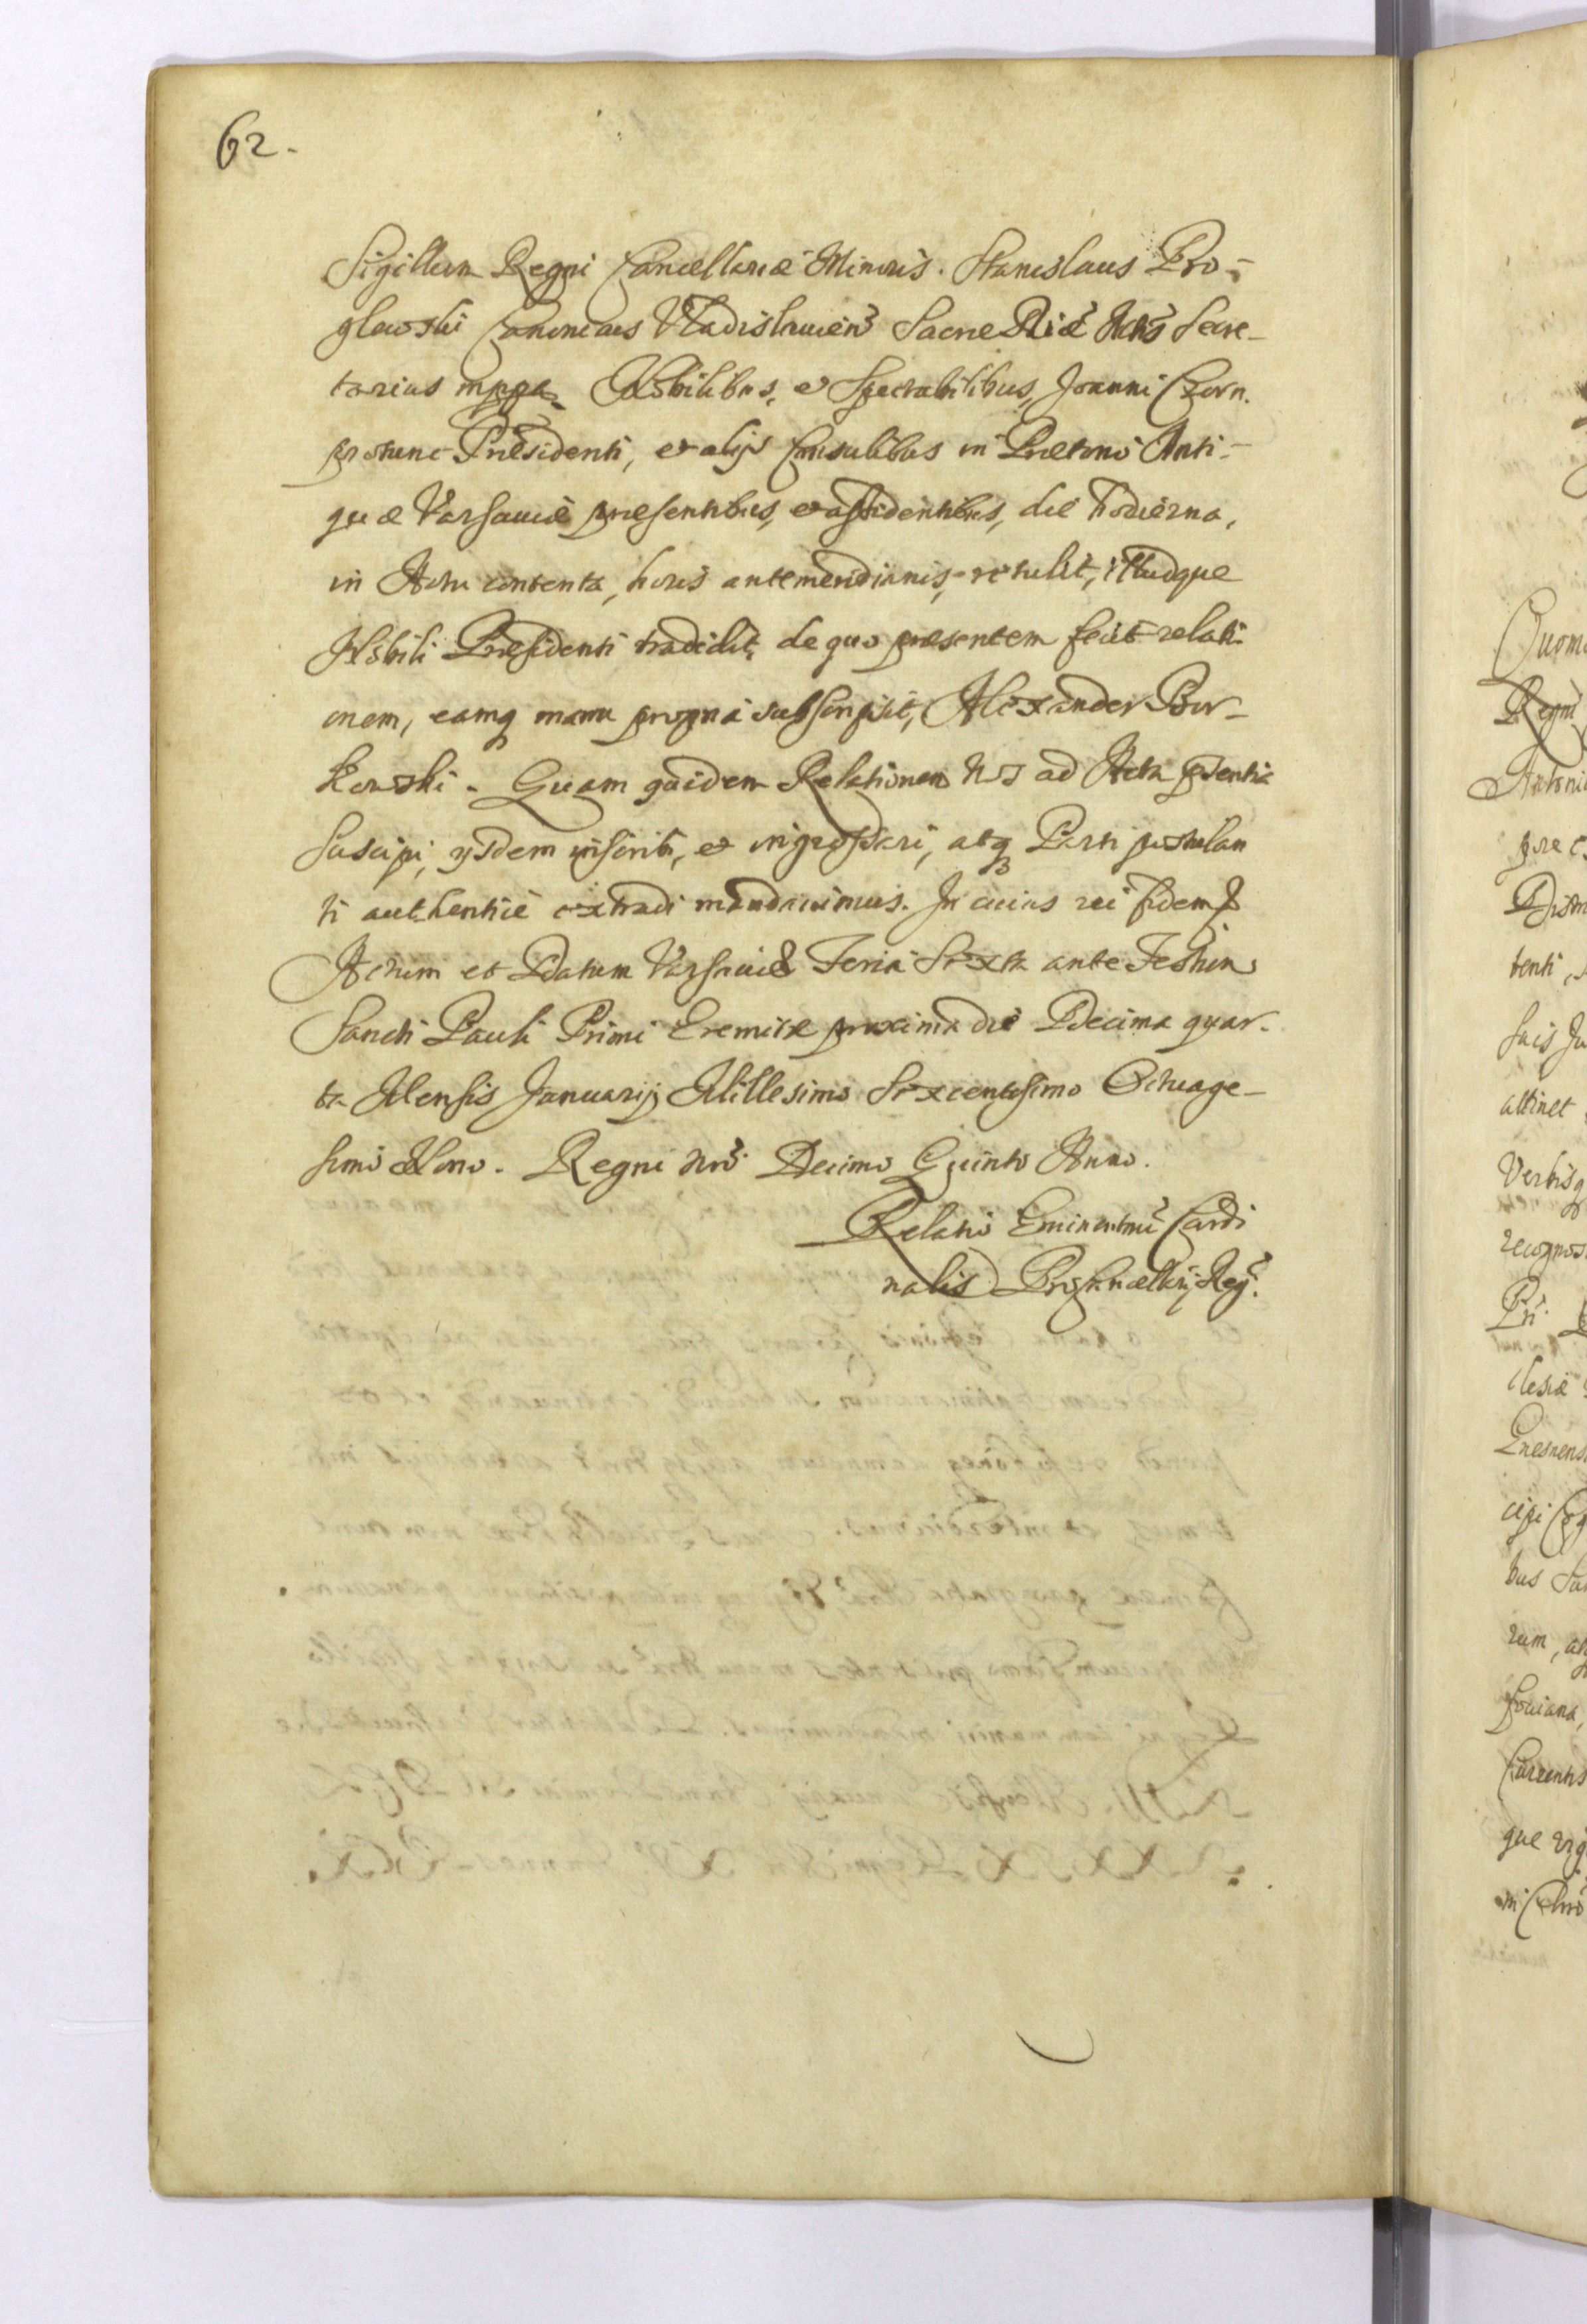 62.
Sigillum Regni Cancellariæ Minoris. Stanislaus Bro-
glowski Canonicus Vladislauien̄ Sacræ Riæ Mtis Secre-
tarius mppa. Nobilibus, et Spectabilibus, Joanni Czern.
protunc Præsidenti, et alijs Consulibus in Prætorio Anti-
quæ Varsauiæ præsentibus, et assidentibus, die hodierna,
in Actu contenta, horis antemeridianis, retulit, illudque
Nobili Præsidenti tradidit, de quo præsentem fecit relati
onem, eamq manu propria subscripsit, Alexander Bor-
kowski. Quam quidem Relationem Nos ad Acta pñtia
suscipi, ijsdem inscribi, et ingrossari, atq Parti postulan
ti authentice extradi mandauimus. In cuius rei fidem
Actum et Datum Varsauiæ Feria Sexta ante Festum
Sancti Pauli Primi Eremitæ proxima die Decima quar-
ta Mensis Januarij Millesimo Sexcentesimo Octuage-
simo Nono. Regni nrī Decimo Quinto Anno.
Relatio Eminentmi Cardi
nalis Procancellarij Reg.
Quom
Regni
Antoni
tenti,
suis Ju
attinet
Verbisq
recognos
lesiæ
Gnesnens
cipi
bus
rum, at
Curentis
que